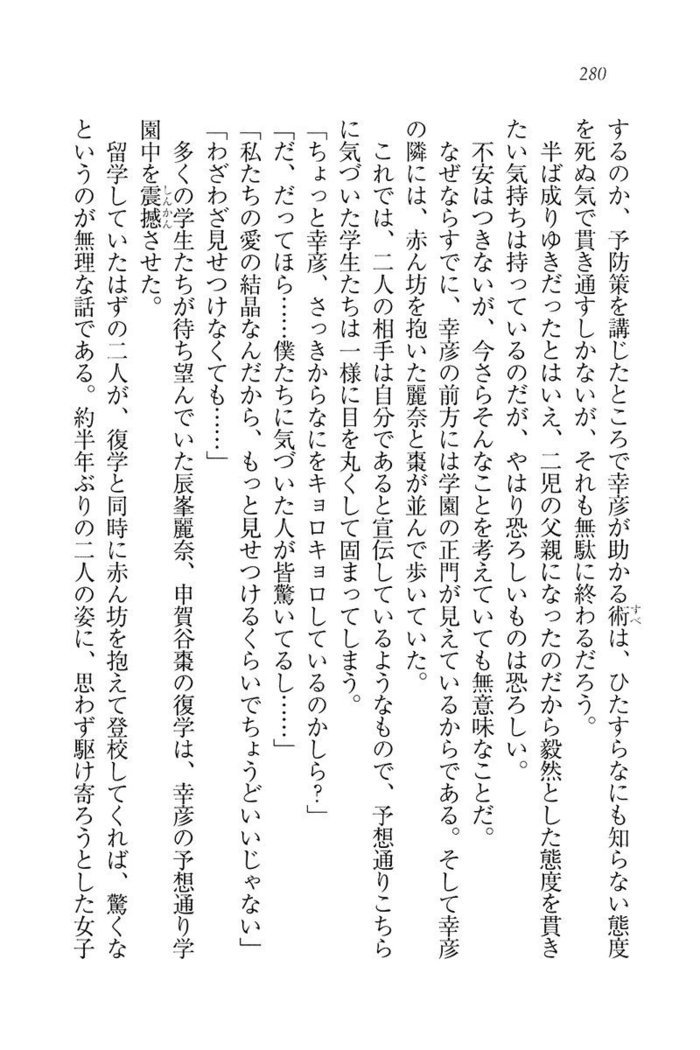 280
するのか、予防策を講じたところで幸彦が助かる術は、ひたすらなにも知らない態度
すべ
を死ぬ気で貫き通すしかないが、それも無駄に終わるだろう。
半ば成りゆきだったとはいえ、二児の父親になったのだから毅然とした態度を貫き
たい気持ちは持っているのだが、やはり恐ろしいものは恐ろしい。
不安はつきないが、今さらそんなことを考えていても無意味なことだ。
なぜならすでに、幸彦の前方には学園の正門が見えているからである。そして幸彦
の隣には、赤ん坊を抱いた麗奈と棗が並んで歩いていた。
これでは、二人の相手は自分であると宣伝しているようなもので、予想通りこちら
に気づいた学生たちは一様に目を丸くして固まってしまう。
「ちょっと幸彦、さっきからなにをキョロキョロしているのかしら？」
「だ、だってほら……僕たちに気づいた人が皆驚いてるし……」
「私たちの愛の結晶なんだから、もっと見せつけるくらいでちょうどいいじゃない」
「わざわざ見せつけなくても……」
多くの学生たちが待ち望んでいた辰峯麗奈、申賀谷棗の復学は、幸彦の予想通り学
園中を震撼させた。
しんかん
留学していたはずの二人が、復学と同時に赤ん坊を抱えて登校してくれば、驚くな
というのが無理な話である。約半年ぶりの二人の姿に、思わず駆け寄ろうとした女子